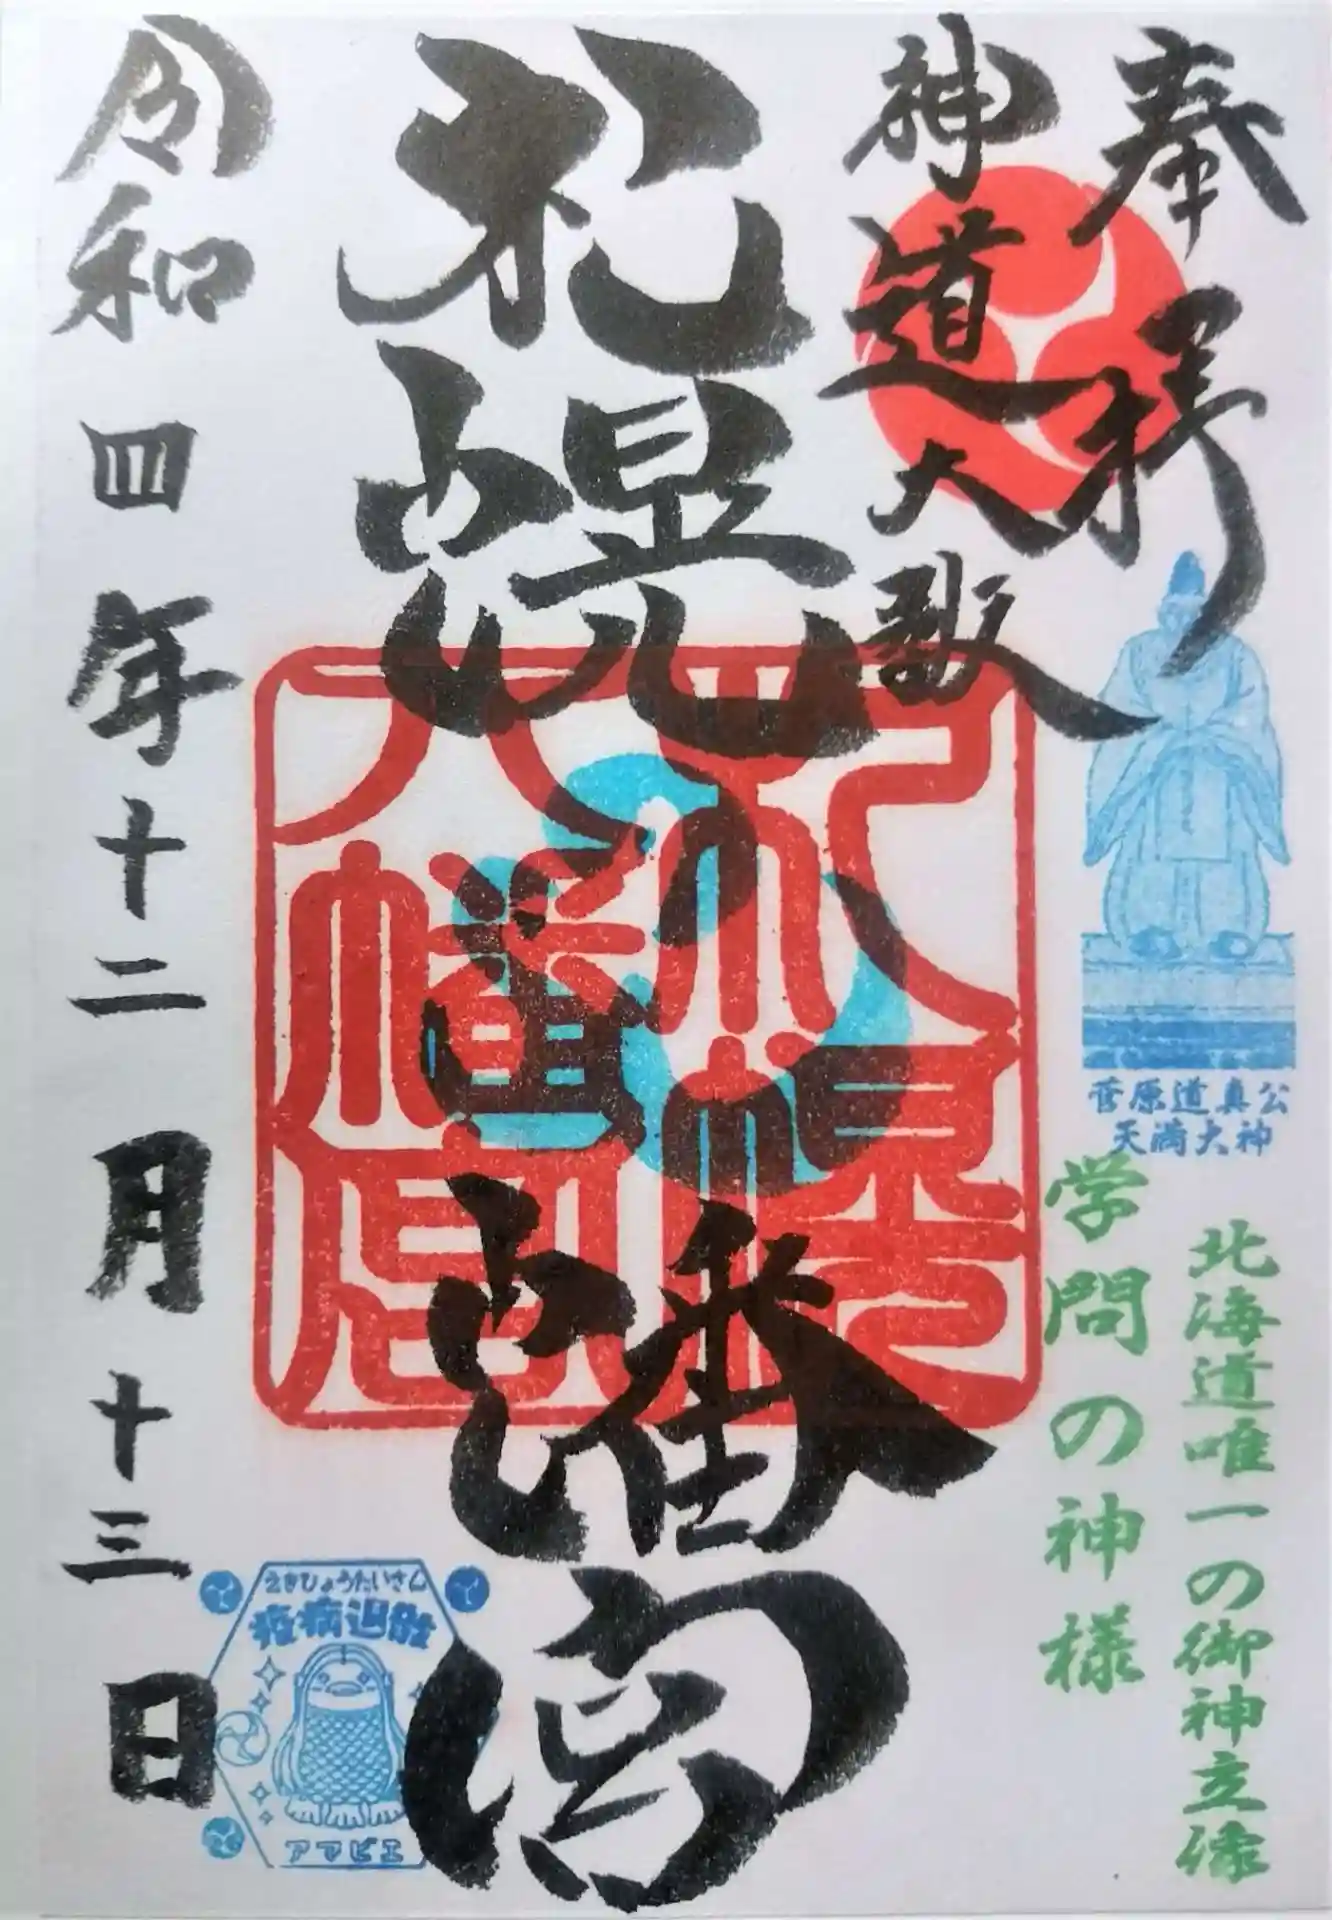 奉拝
神道大教
札幌八幡宮
令和四年十二月十三日
札幌八幡宮
菅原道真公
天満大神
北海道唯一の御神立像
学問の神様
えきびょうたいさん
疫病退散
アマビエ